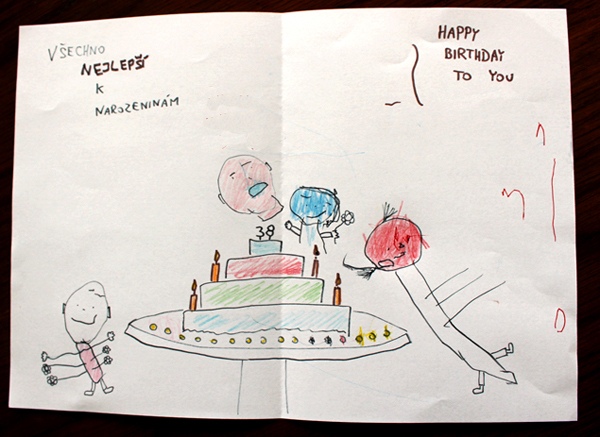 VŠECHNO
NEJLEPŠÍ
K
NAROZENINÁM
HAPPY
BIRTHDAY
TO YOU
38